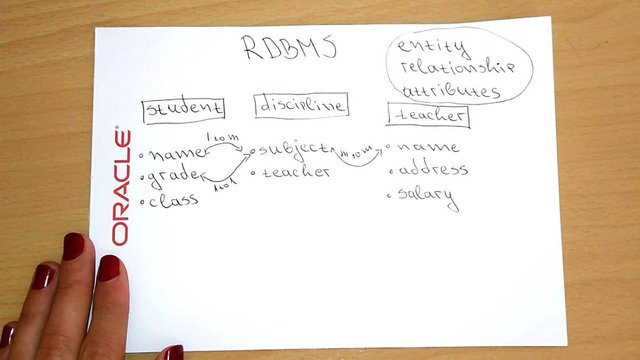 RDBMS
entity
relationship
attributes
student
discipline
teacher
1 to m
m to m
1 to 1
• name
• grade
• class
• subject
• teacher
• name
• address
• salary
ORACLE